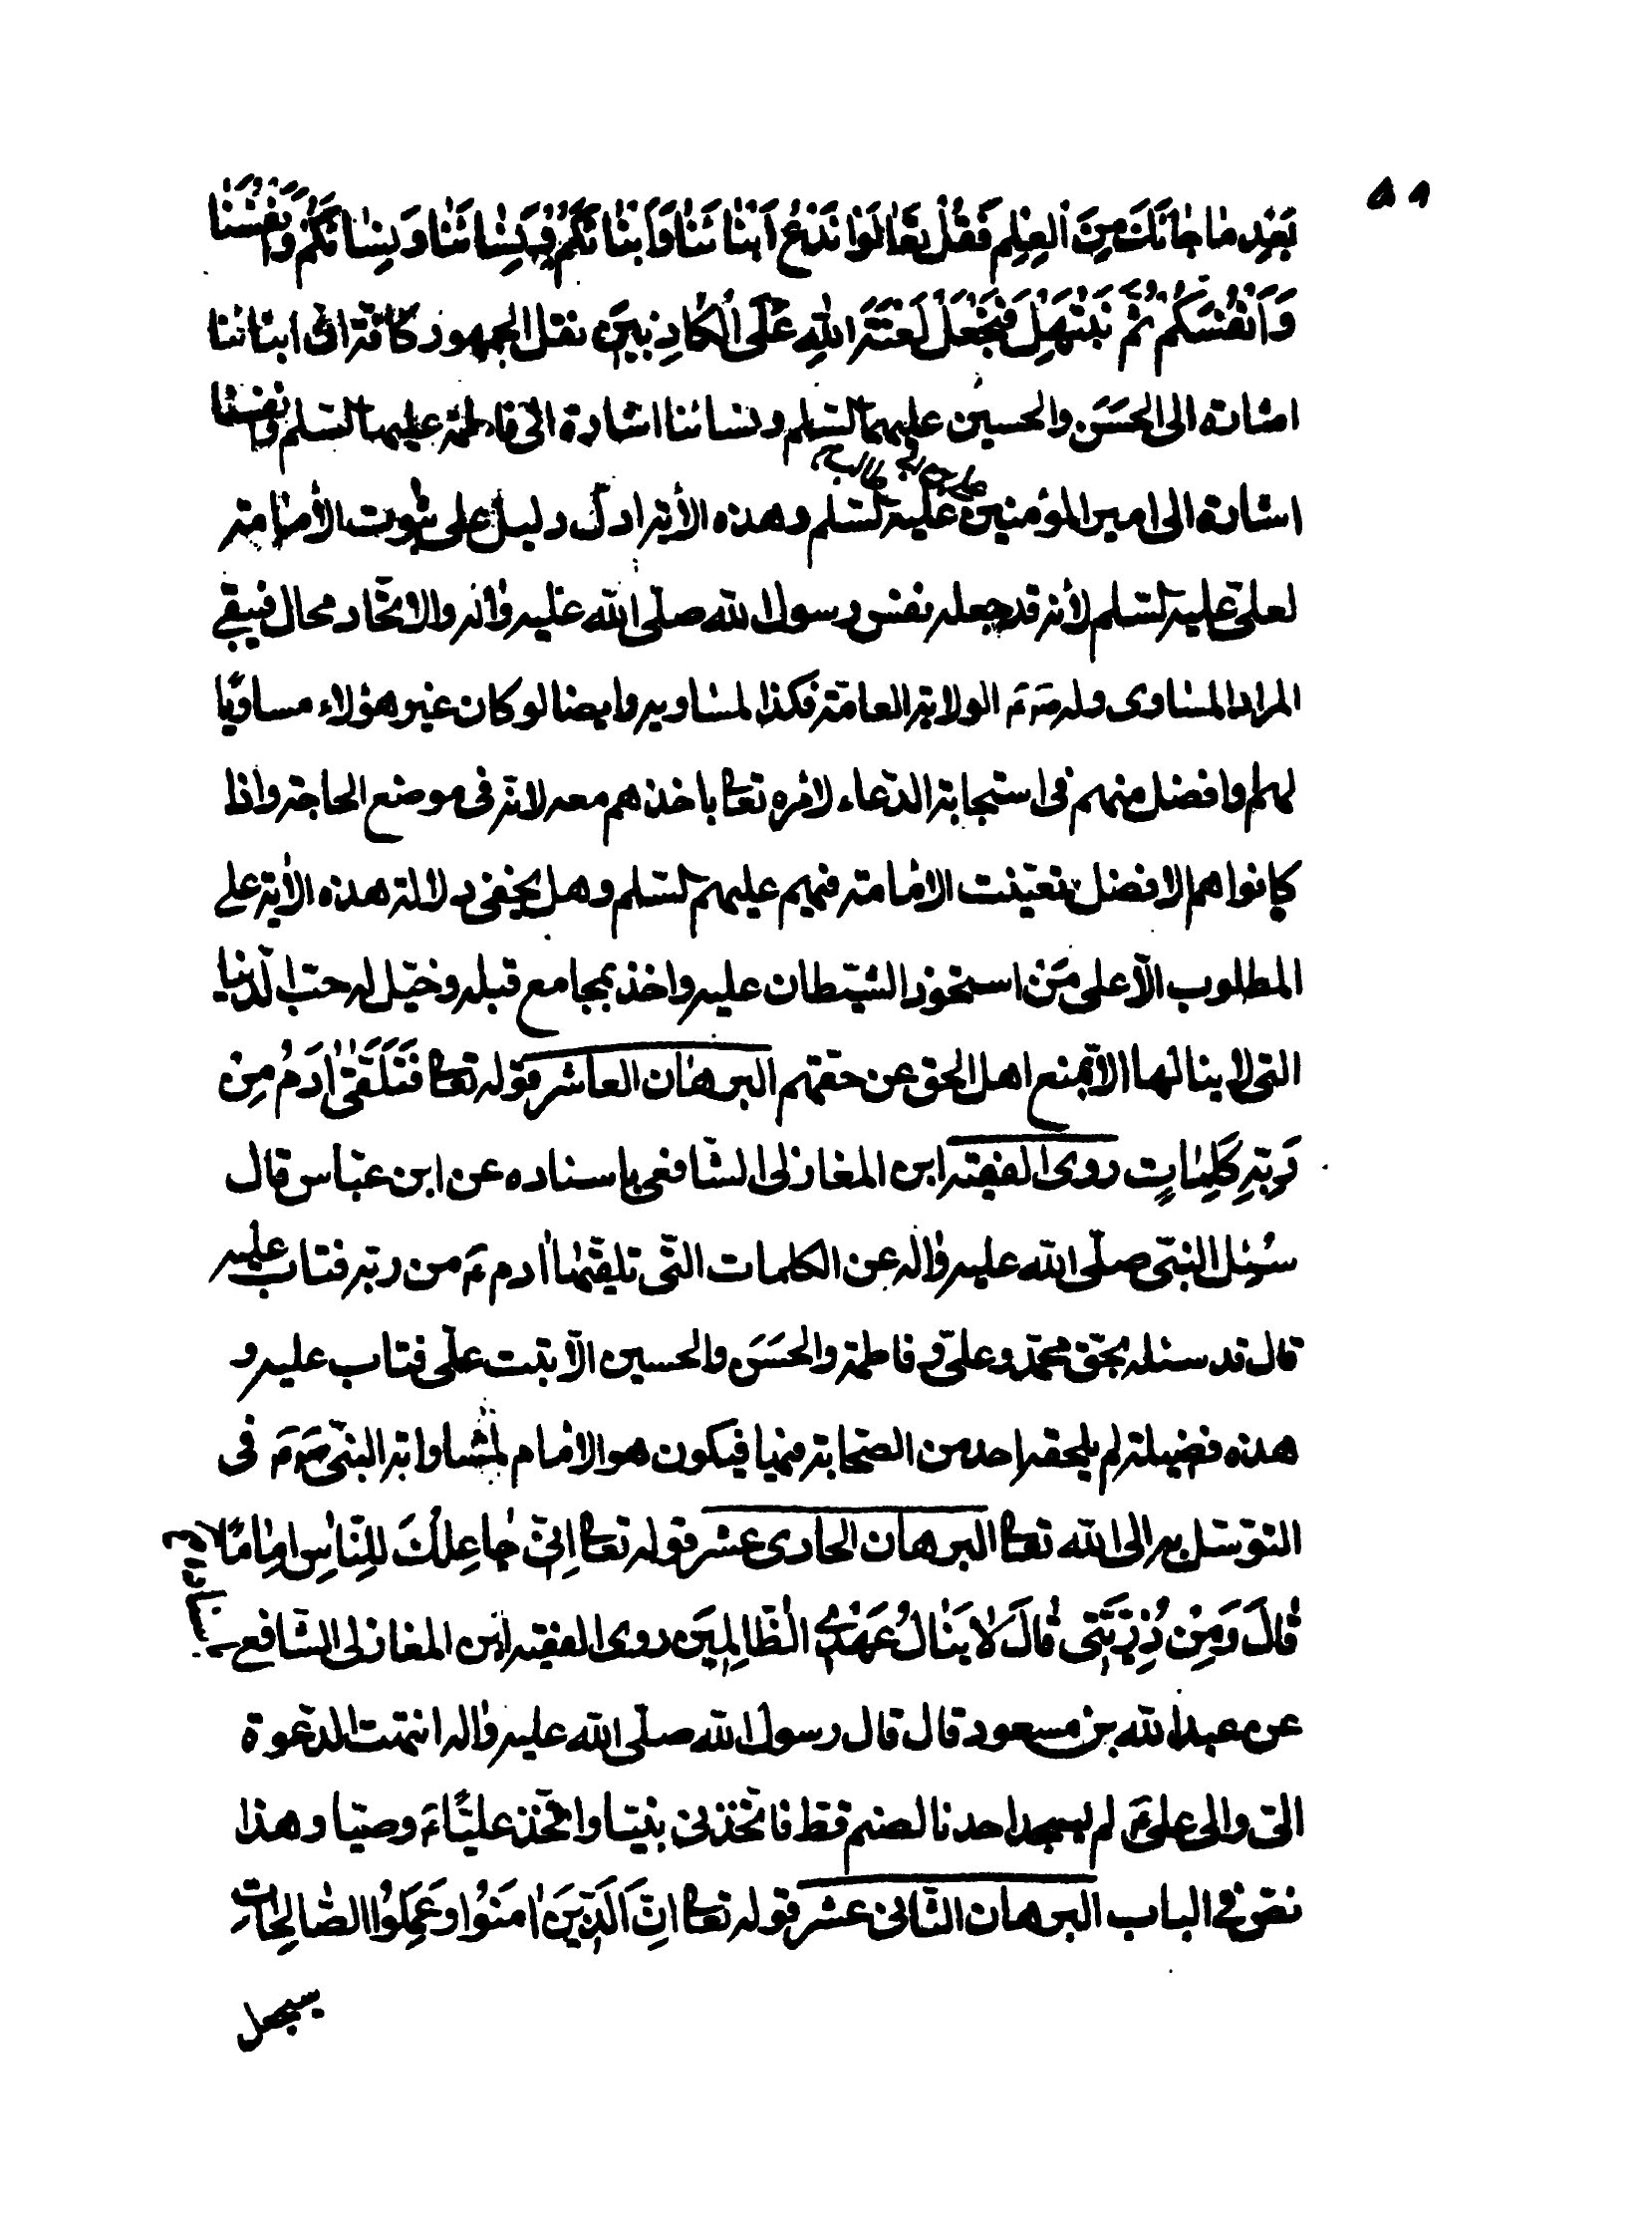 ٥٩
بَعْدِ مٰا جٰائَكَ مِنَ الْعِلْمِ فَقُلْ تَعٰالَوْا نَدْعُ اَبْنٰائَنٰا وَاَبْنٰائَكُمْ وَنِسٰائَنٰا وَنِسٰائَكُمْ وَاَنْفُسَنٰا
وَاَنْفُسَكُمْ ثُمَّ نَبْتَهِلْ فَنَجْعَلْ لَعْنَةَ اللهِ عَلَى الْكٰاذِبينَ نقل الجمهور كافّة انّ ابنائنا
اشارة الى الحَسَن والحسين عليهما السّلم ونسائنا اشارة الى فاطمة عليها السّلم وانفسنا
اشارة الى امير المؤمنين علي بن ابي طالب عليه السّلم وهذه الأية ادلّ دليل على ثبوت الأمامة
لعلى عليه السّلم لأنه قد جعله نفس رسول الله صلّى الله عليه واله والاتّحاد محال فيبقى
المراد المساوى وله صَ مَ الولاية العامّة فكذا المساويه وايضا لو كان غير هؤلاء مساويًا
لهم وافضل منهم فى استجابة الدّعاء لامره تعالى باخذهم معه لانّه فى موضع الحاجة واذا
كانوا هم الافضل تعيّنت الامامة فيهم عليهم السّلم وهل يخفى دلالة هذه الأية على
المطلوب الّا على مَن استحوذ الشّيطان عليه واخذ بمجامع قبله وخيّل له حبّ الدّنيا
التى لا ينالها الّا بمنع اهل الحق عن حقّهم البرهان العاشر قوله تعالى فَتَلَقّٰى اٰدَمُ مِنْ
رَبِّهِ كَلِمٰاتٍ روى الفقيه ابن المغازلى الشّافعى باسناده عن ابن عبّاس قال
سُئل النبّى صلّى الله عليه واله عن الكلمات التّى تلقّيها ادم عَ من ربّه فتاب عليه
قال قد سئله بحقّ محمّد وعلىّ وفاطمة والحَسَن والحسين الّا تبت علّى فتاب عليه و
هذه فضيلة لم يلحقه احد من الصّحابة فيها فيكون هو الامام لمساواته النبّى صَ مَ فى
التوسّل به الى الله تعالى البرهان الحادى عشر قوله تعالى اِنّى جٰاعِلُكَ لِلنّٰاسِ اِمٰامًا
قٰالَ وَمِنْ ذُرِّيَّتى قٰالَ لٰا يَنٰالُ عَهْدِي الظّٰالِمينَ روى الفقيه ابن المغازلى الشّافعى
عن عبد الله بن مسعود قال قال رسول الله صلّى الله عليه واله انتهت الدّعوة
الىّ والى علىّ عَ لم يسجد احدنا لصنم قط فاتّخذنى نبيّا واتّخذ عليّاً عَ وصيّا وهذا
نصّ فى الباب البرهان الثّانى عشر قوله تعالى اِنَّ الَّذينَ اٰمَنُوا وَعَمِلُوا الصّٰالِحٰاتِ
سيجعل